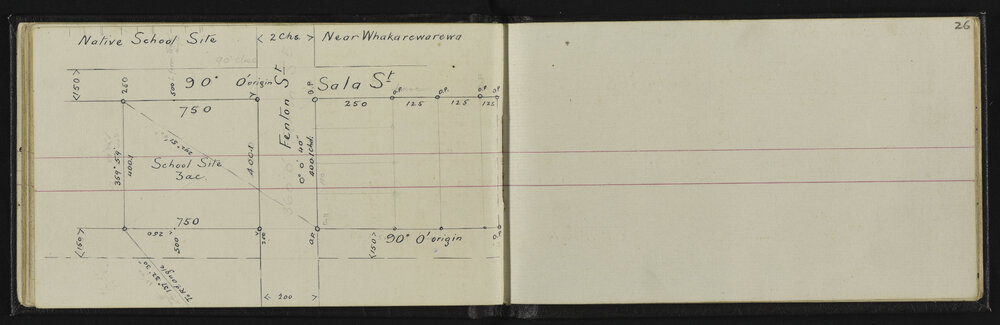 Native School Site < 2 Chs. > Near Whakarewarewa
26
<150> 250 500 90° 0' origin Fenton St O.P. Sala St O.P. O.P. O.P. O.P.
750 250 125 125 125
359° 59' 4001 School Site
3ac. 4001 0° 0' 40" 400 lkd.
750
<150> 250 500 250 O.P. <150> 90° 0' origin
131° 32' 30"
< 200 >